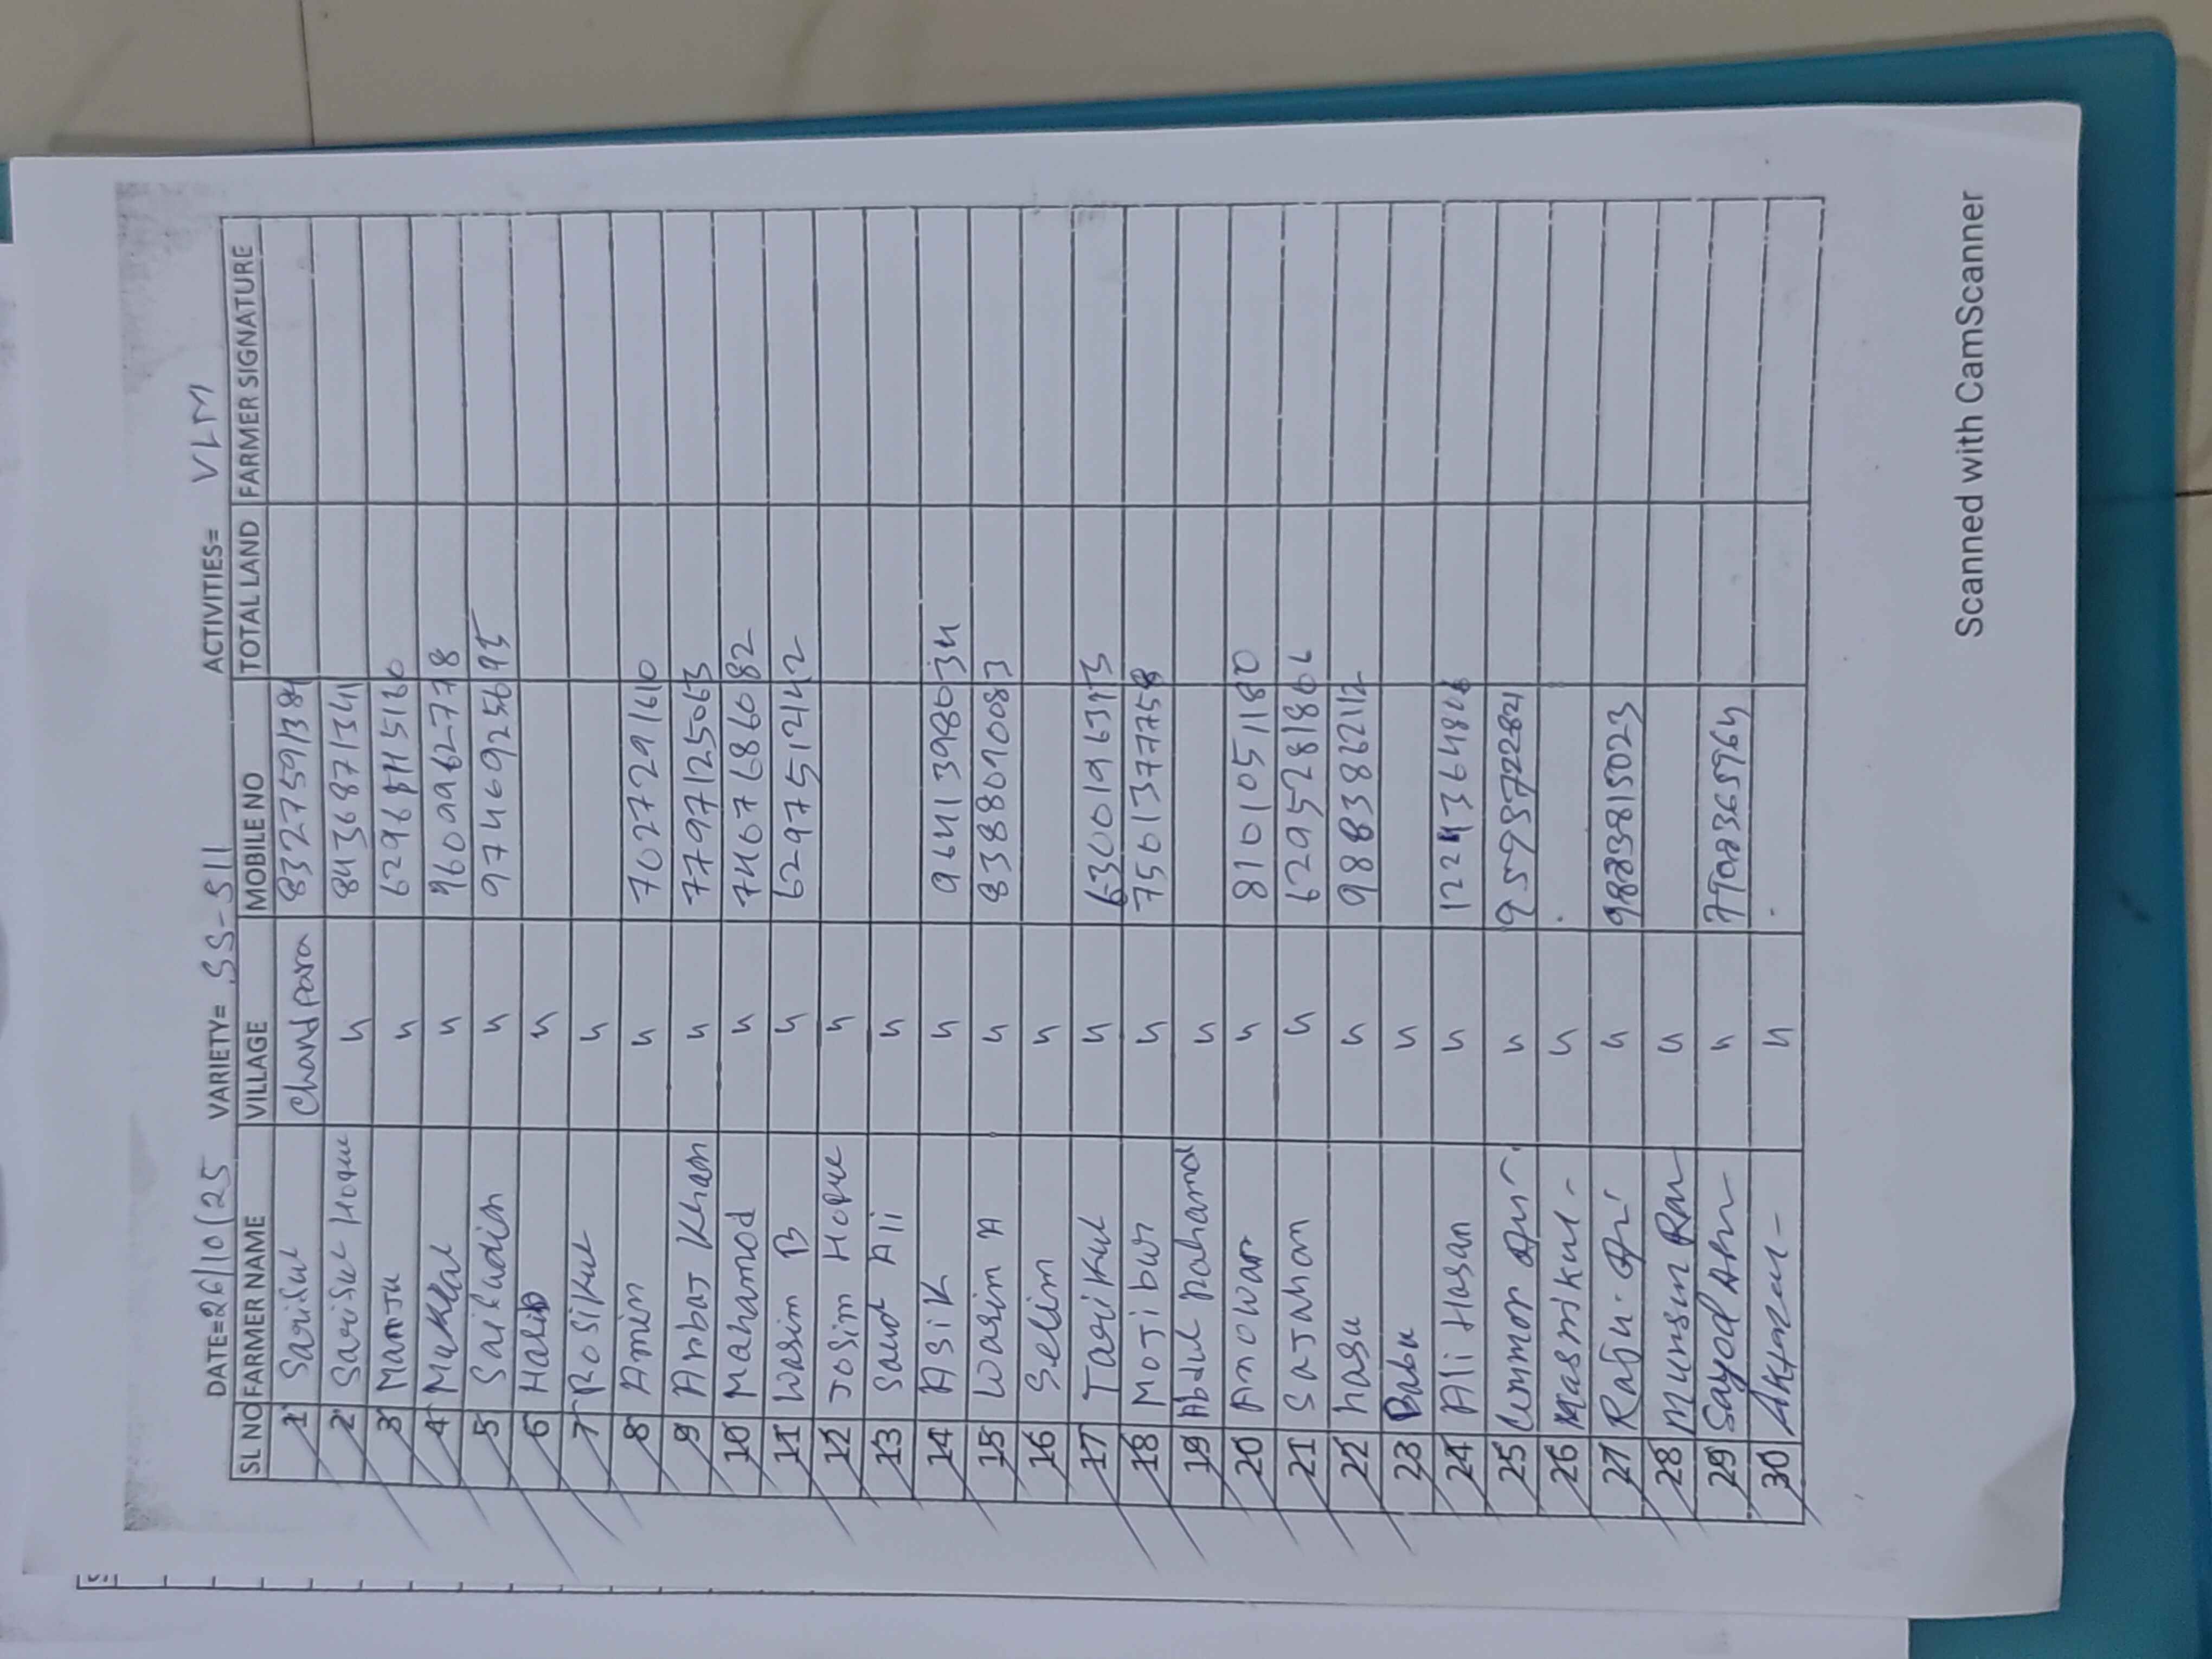 DATE=26/10/25 VARIETY= SS-511 ACTIVITIES= VLM
SL NO FARMER NAME VILLAGE MOBILE NO TOTAL LAND FARMER SIGNATURE
1 Sariful Chandpara 8327591384
2 Sariful Hoque " 8436871341
3 Manju "
4 Mukkal " 9609962778
5 Saifuddin " 9746925695
6 Habib "
7 Rosikul "
8 Amin " 7027291610
9 Ambaj Khan " 7797125063
10 Mahamod " 7407686082
11 Wasim B " 6297512142
12 Josim Hoque "
13 Saud Ali "
14 ASIK " 9641398034
15 Wasim A " 8388090083
16 Selim "
17 Tarikul "
18 Mojibur " 7501377758
19 Abdul Rahamad "
20 Anowar " 8101051180
21 Sajahan "
22 hasu " 9883862112
23 Babu "
24 Ali Hasan "
25 Ummor "
26 Masmikul "
27 Raju "
28 "
29 Sayod "
30 "
Scanned with CamScanner